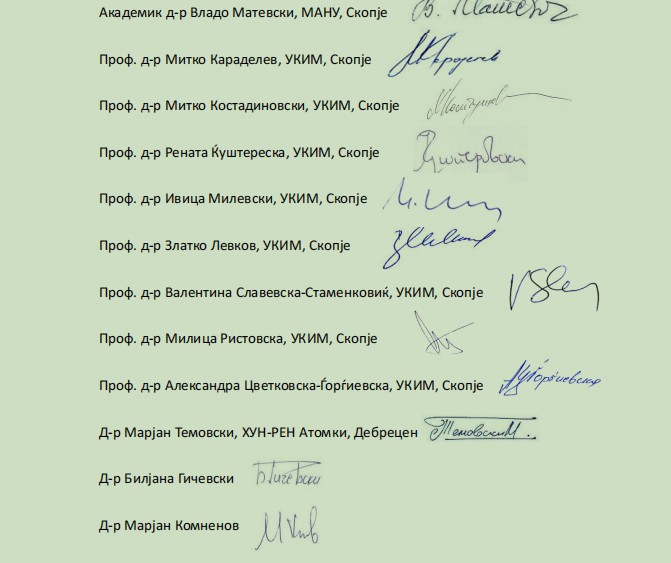 Академик д-р Владо Матевски, МАНУ, Скопје
Проф. д-р Митко Караделев, УКИМ, Скопје
Проф. д-р Митко Костадиновски, УКИМ, Скопје
Проф. д-р Рената Ќуштереска, УКИМ, Скопје
Проф. д-р Ивица Милевски, УКИМ, Скопје
Проф. д-р Златко Левков, УКИМ, Скопје
Проф. д-р Валентина Славевска-Стаменковиќ, УКИМ, Скопје
Проф. д-р Милица Ристовска, УКИМ, Скопје
Проф. д-р Александра Цветковска-Ѓорѓиевска, УКИМ, Скопје
Д-р Марјан Темовски, ХУН-РЕН Атомки, Дебрецен
Д-р Билјана Гичевски
Д-р Марјан Комненов